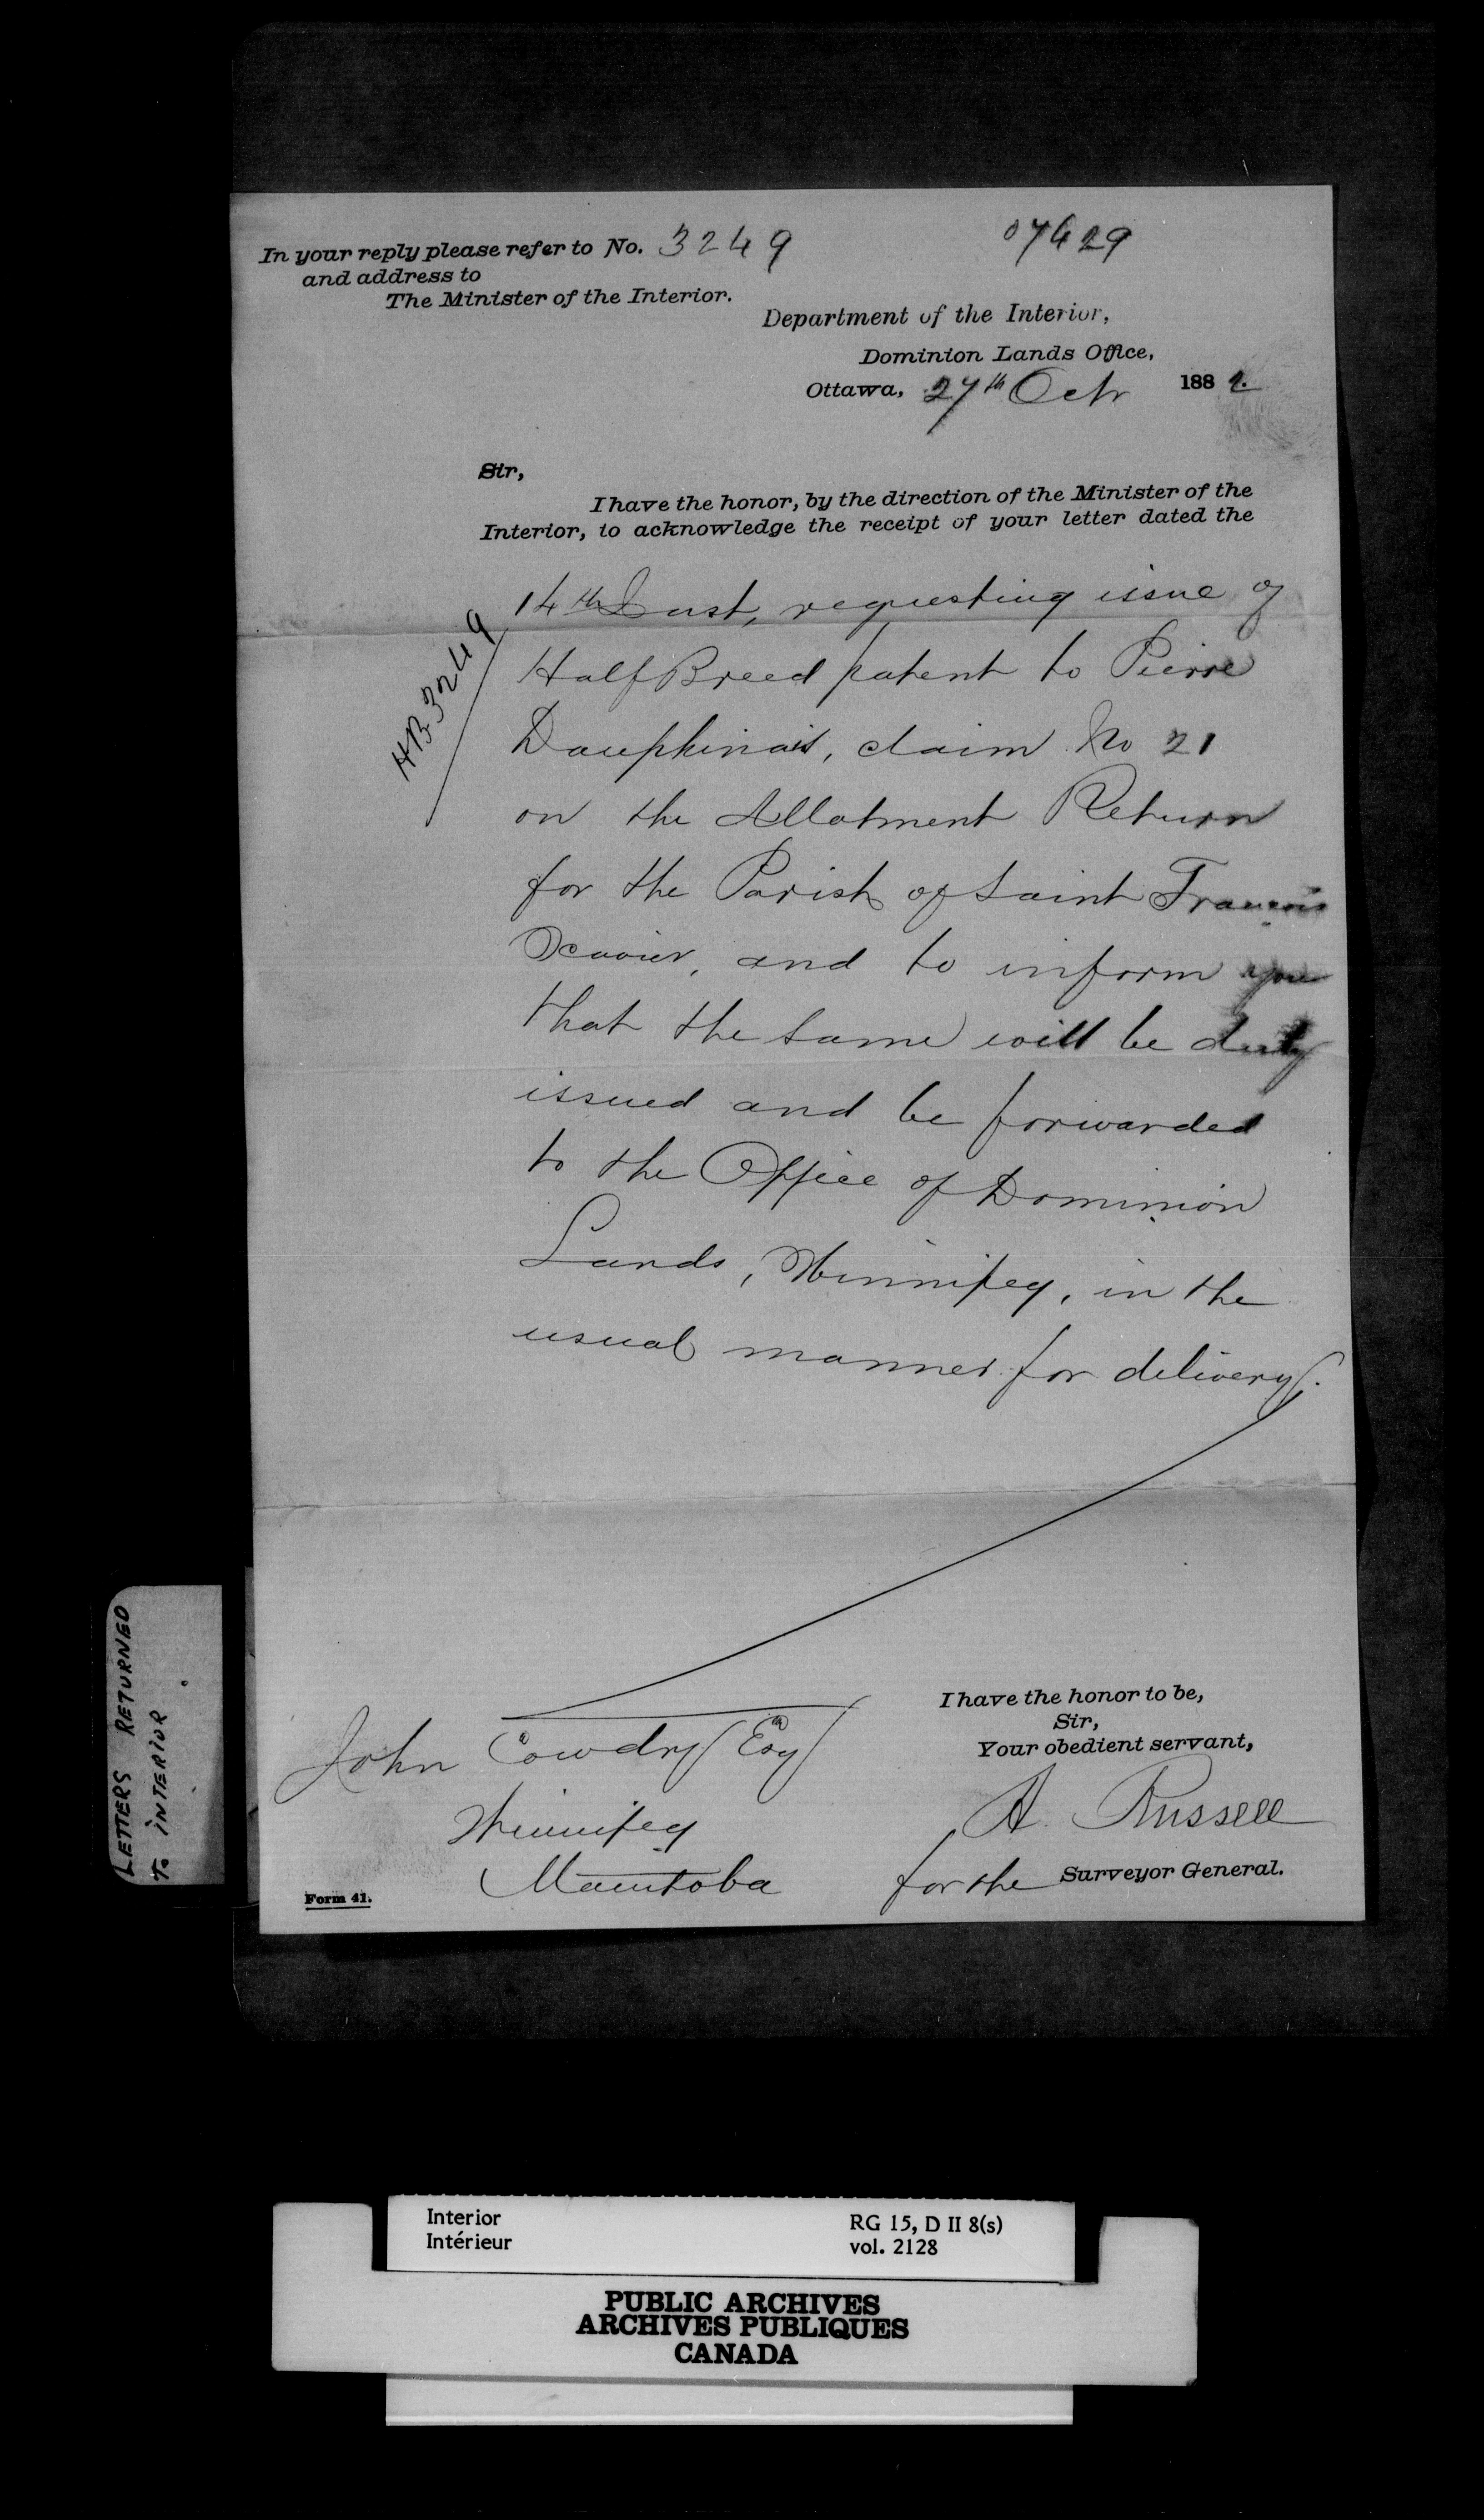 In your reply please refer to No. 3249
and address to
The Minister of the Interior.
07429
Department of the Interior,
Dominion Lands Office,
Ottawa, 27th Octr 1882.
Sir,
I have the honor, by the direction of the Minister of the
Interior, to acknowledge the receipt of your letter dated the
14th Inst, requesting issue of
HB 3249
Half Breed patent to Pierre
Dauphinais, claim No 21
on the Allotment Return
for the Parish of Saint Francois
Xavier, and to inform you
that the same will be duly
issued and be forwarded
to the Office of Dominion
Lands, Winnipeg, in the
usual manner for delivery.
I have the honor to be,
Sir,
Your obedient servant,
A. Russell
for the Surveyor General.
John Cowdry Esq
Winnipeg
Manitoba
Form 41.
LETTERS RETURNED
To INTERIOR
Interior
Intérieur
RG 15, D II 8(s)
vol. 2128
PUBLIC ARCHIVES
ARCHIVES PUBLIQUES
CANADA